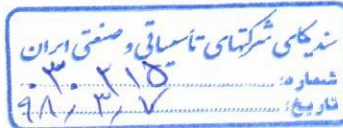 سندیکای شرکتهای تأسیساتی و صنعتی ایران
شماره: ۰۳۰۲۱۵
تاریخ: ۹۸/۳/۷